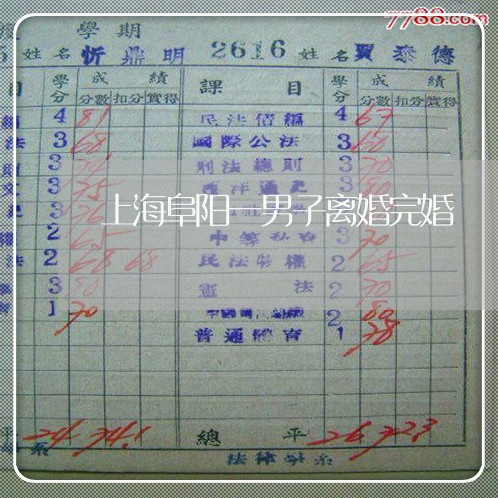 7788.com
學期
姓名 忻鼎明 2616 姓名 賈泰德
目 學分 成績 課目 學分 成績
分數 扣分 實得 分數 扣分 實得
4 81 民法債編 4 67
法 3 68 國際公法 3 60
3 刑法總則 3 70
文 3 75 西洋通史 3 80
3 76 3
上海阜阳一男子离婚完婚
權 2 65 3 70
法 2 68 68 民法物權 2 65
3 80 憲法 2 70
育 1 70 2 80
普通體育 1 78
平 24 74.1 總平 26 72.3
系 法律學系